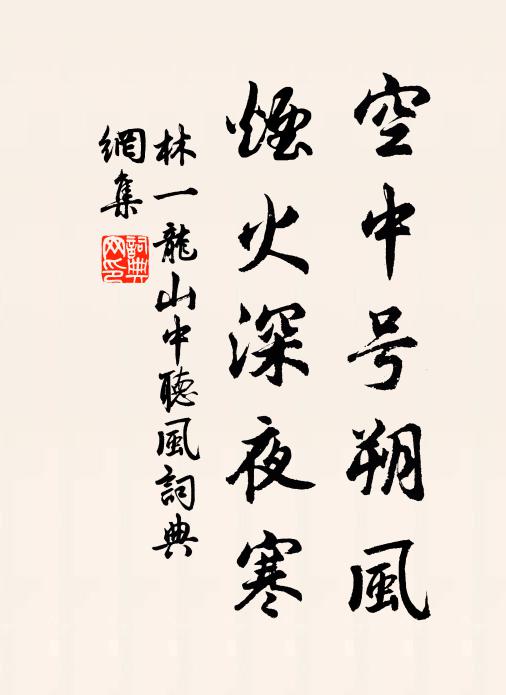 空中号朔風
煙火深夜寒
林一龍山中聽風詞典
網集
詞典網印